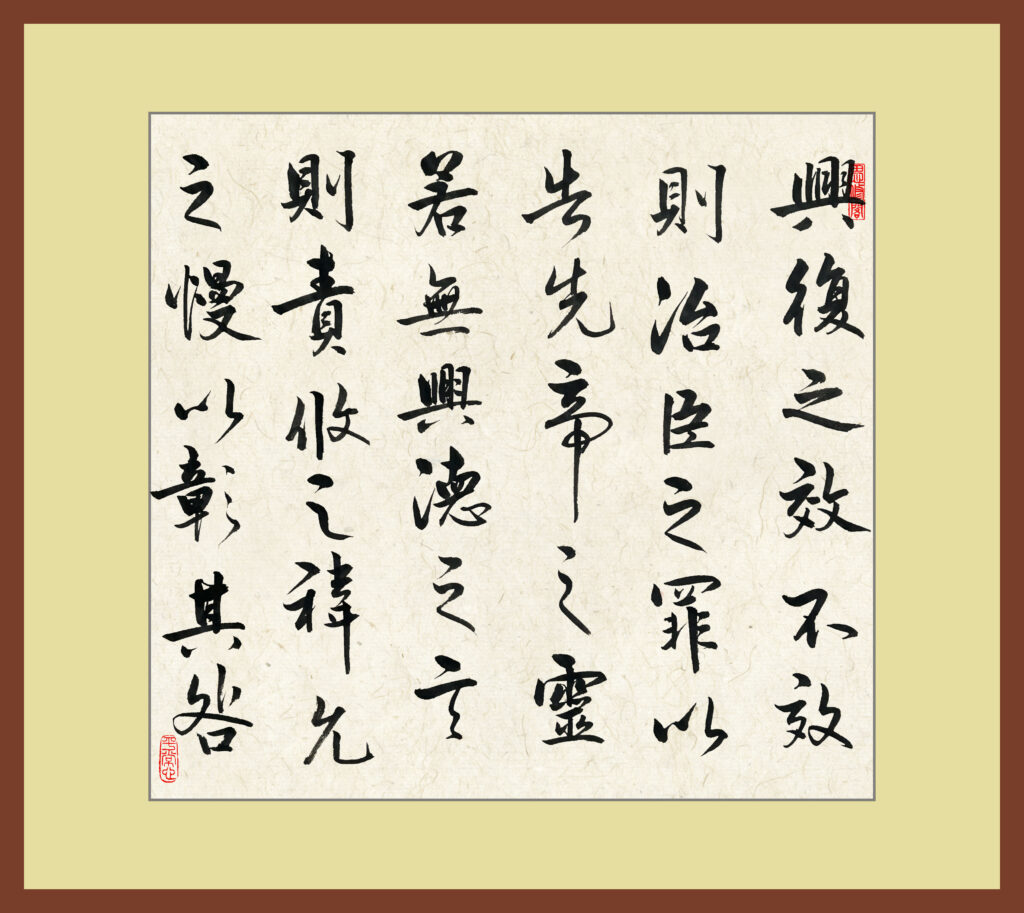 興復之效不效
則治臣之罪以
告先帝之靈
若無興德之言
則責攸之禕允
之慢以彰其咎
平常心